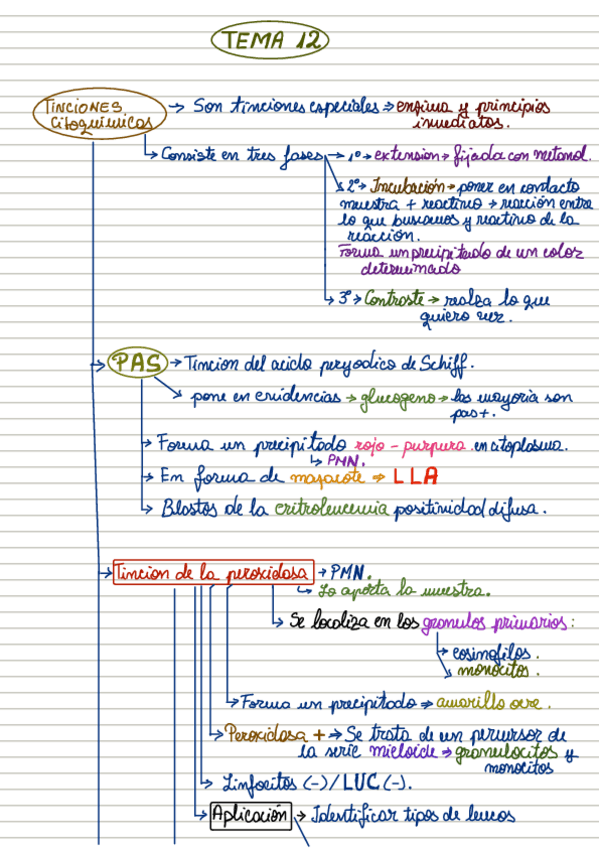 TEMA 12
TINCIONES → Son tinciones especiales ⇒ enzima y principios
Citoquímicas inmediatos.
↳ Consiste en tres fases → 1º → extension → fijada con metanol.
2º → Incubación → poner en contacto
muestra + reactivo → reacción entre
lo que buscamos y reactivo de la
reacción.
Forma un precipitado de un color
determinado
3º → Contraste → realza lo que
quiero ver.
PAS → Tincion del acido peryodico de Schiff.
pone en evidencias → glucogeno → las mayoria son
pas+.
Forma un precipitado rojo - purpura en citoplasma.
↳ PMN.
En forma de mazacote ⇒ LLA
Blastos de la eritroleucemia positividad difusa.
Tincion de la peroxidasa → PMN.
↳ Lo aporta la muestra.
Se localiza en los granulos primarios:
eosinofilos.
monocitos.
Forma un precipitado ⇒ amarillo ocre.
Peroxidasa + → Se trata de un percursor de
la serie mieloide → granulocitos y
monocitos
Linfocitos (-) / LUC (-).
Aplicación → Identificar tipos de leucos